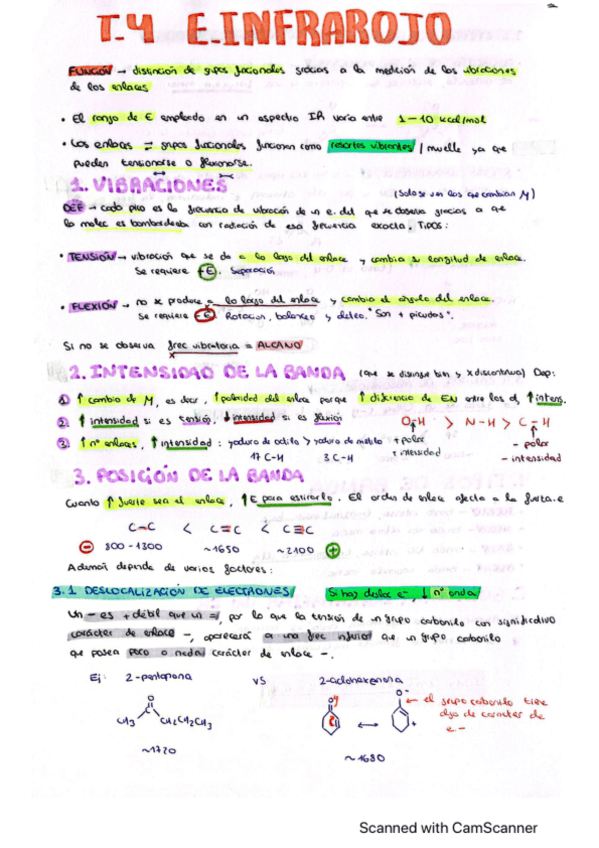 T.4 E.INFRAROJO
FUNCIÓN → distinción de grupos funcionales gracias a la medición de las vibraciones
de los enlaces
• El rango de E empleado en un espectro IR varía entre 1-10 kcal/mol
• Los enlaces ⇌ grupos funcionales funcionan como resortes vibrantes / muelle ya que
pueden tensionarse o flexionarse.
1. VIBRACIONES
(Solo se ven los que cambian M)
DEF → cada pico es la frecuencia de vibración de un e. del que se observa gracias a que
la molec es bombardeada con radiación de esa frecuencia exacta. TIPOS:
• TENSIÓN → vibración que se da a lo largo del enlace y cambia su longitud de enlace.
Se requiere + E. Separación
• FLEXIÓN → no se produce a lo largo del enlace y cambia el ángulo del enlace.
Se requiere - E. Rotación, balanceo y aleteo. "Son + picudos".
Si no se observa frec vibratoria = ALCANO
2. INTENSIDAD DE LA BANDA (que se distingue bien y x discontinua) Dep:
1. ↑ cambio de M, es decir, ↑ polaridad del enlace porque ↑ diferencia de EN entre los at, ↑ intens.
2. ↑ intensidad si es tensión, ↓ intensidad si es flexión
O-H > N-H > C-H
3. ↑ nº enlaces, ↑ intensidad: yoduro de octilo > yoduro de metilo
+ polar
+ intensidad
- polar
- intensidad
17 C-H 3 C-H
3. POSICIÓN DE LA BANDA
Cuanto ↑ fuerte sea el enlace, ↑ E para estirarlo. El orden de enlace afecta a la fuerza.e
C-C < C=C < C≡C
- 800-1300 ~1650 ~2100 +
Además depende de varios factores:
3.1 DESLOCALIZACIÓN DE ELECTRONES Si hay desloc e⁻, ↓ nº onda
Un - es + débil que un =, por lo que la tensión de un grupo carbonilo con significativo
carácter de enlace -, aparecerá a una frec inferior que un grupo carbonilo
que posea poco o nada carácter de enlace -.
Ej: 2-pentanona VS 2-ciclohexenona
O
CH₃ C CH₂CH₂CH₃
~1720
O ↔ O⁻ +
← el grupo carbonilo tiene
algo de carácter de
e. -
~1680
Scanned with CamScanner